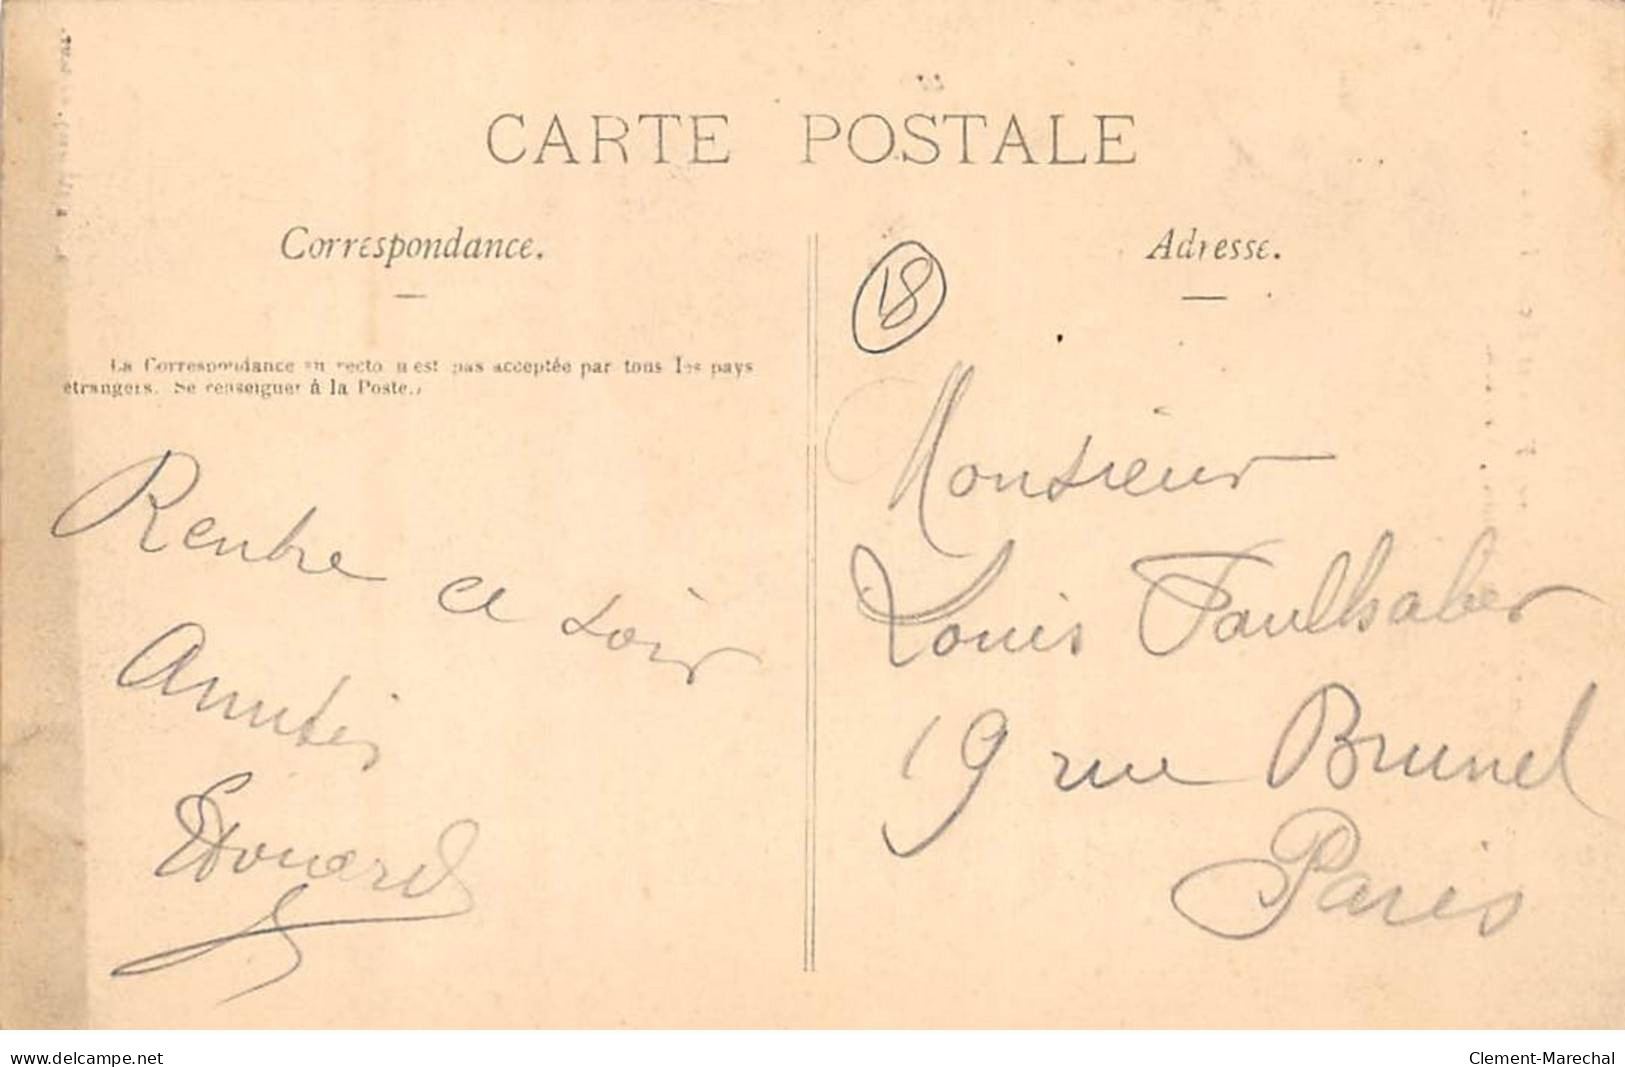 CARTE POSTALE
Correspondance.
La Correspondance au recto n'est pas acceptée par tous les pays
étrangers. Se renseigner à la Poste.)
Rentre ce soir
Amitiés
Edouard
Adresse.
18
Monsieur
Louis Faulhaber
19 rue Brunel
Paris
www.delcampe.net
Clement-Marechal